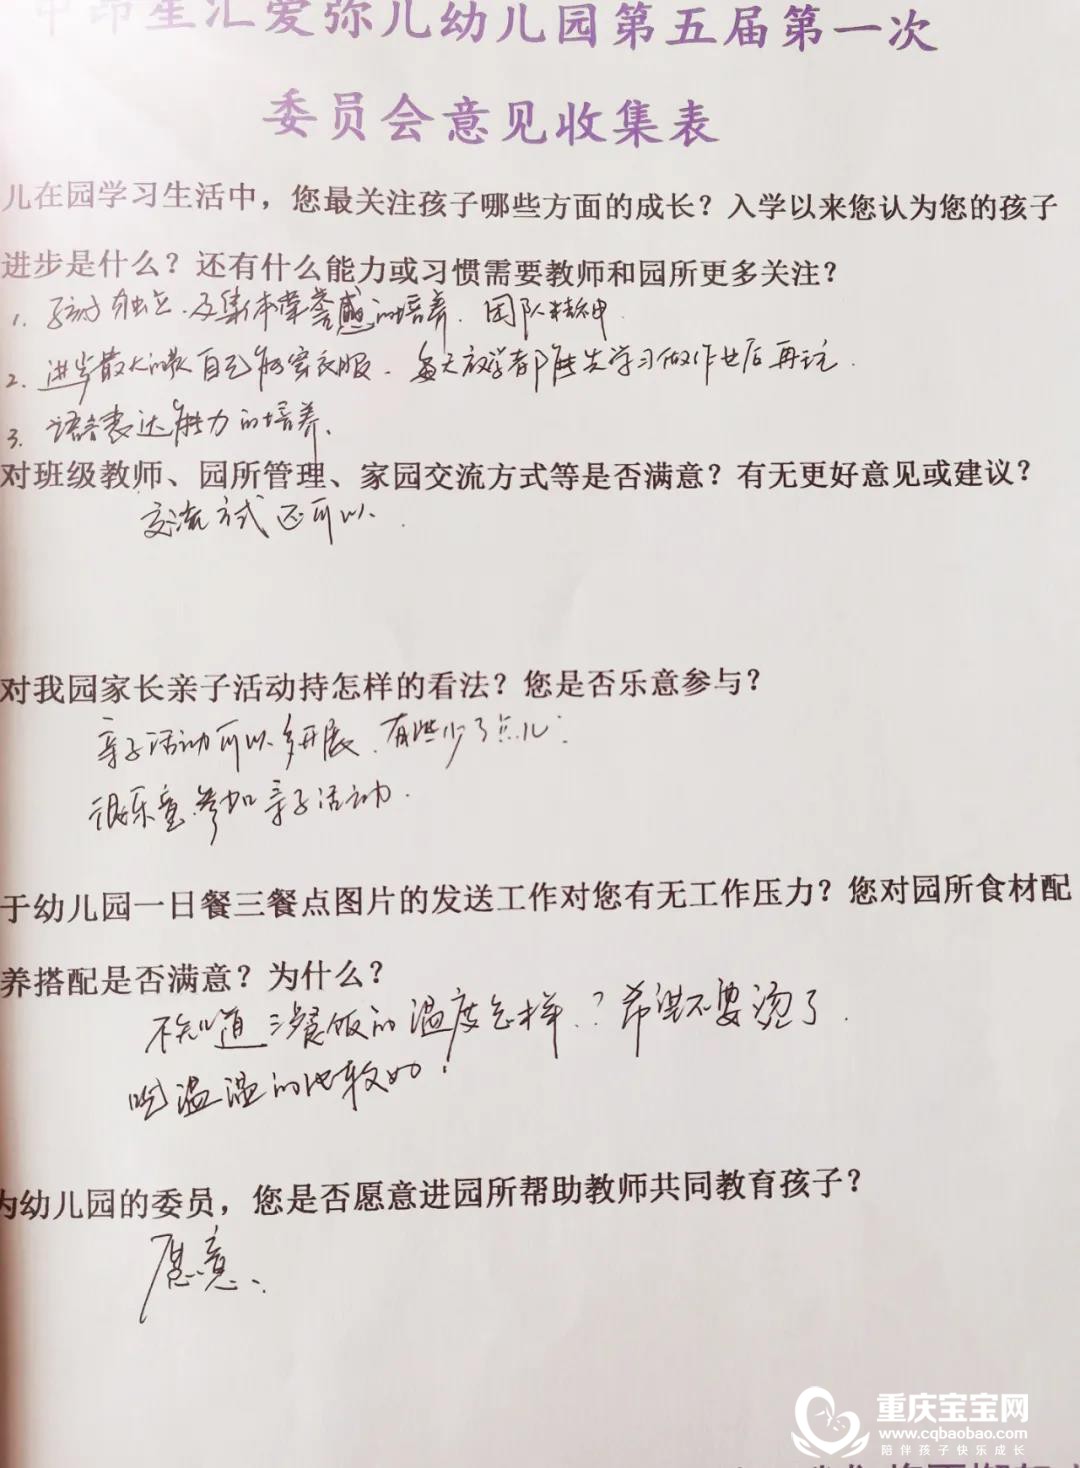 中昂星汇爱弥儿幼儿园第五届第一次
委员会意见收集表
儿在园学习生活中，您最关注孩子哪些方面的成长？入学以来您认为您的孩子
进步是什么？还有什么能力或习惯需要教师和园所更多关注？
1. 独立、及集体荣誉感的培养、团队精神
2. 进步最大的是自己能穿衣服、每天放学都能先学习做作业后再玩.
3. 语言表达能力的培养、
对班级教师、园所管理、家园交流方式等是否满意？有无更好意见或建议？
交流方式还可以.
对我园家长亲子活动持怎样的看法？您是否乐意参与？
亲子活动可以多开展、有些少了点儿.
很乐意参加亲子活动.
于幼儿园一日餐三餐点图片的发送工作对您有无工作压力？您对园所食材配
养搭配是否满意？为什么？
不知道三餐饭的温度怎样.？希望不要烫了.
吃温温的比较好！
为幼儿园的委员，您是否愿意进园所帮助教师共同教育孩子？
愿意、
重庆宝宝网
www.cqbaobao.com
陪伴孩子快乐成长